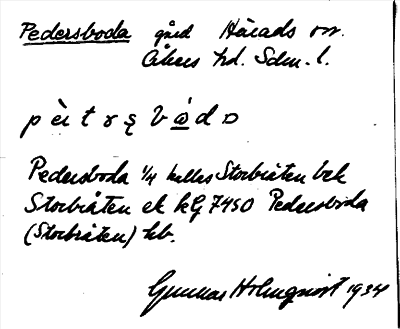 Pedersboda gård Härads sn.
Åkers hd. Sdm. l.
pèt rs bo̲dɒ
Pedersboda 1/4 kallas Storbråten bek
Storbråten ek kG 7450 Pedersboda
(Storbråten) hb.
Gunnar Holmqvist 1934